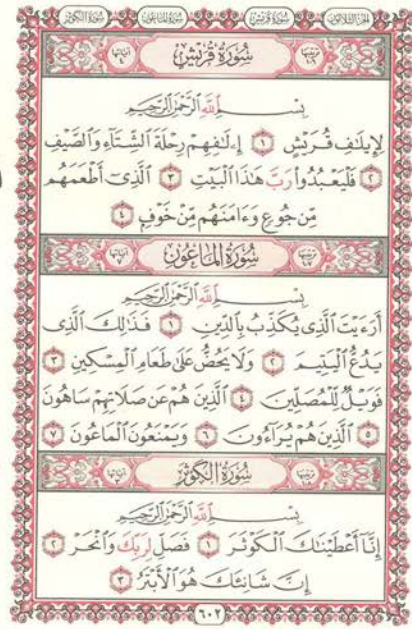 الجزء الثلاثون سورة قريش سورة الماعون سورة الكوثر
ترتيبها ١٠٦ سُورَةُ قُرَيْشٍ آياتها ٤
بِسْمِ اللَّهِ الرَّحْمَٰنِ الرَّحِيمِ
لِإِيلَٰفِ قُرَيْشٍ ١ إِۦلَٰفِهِمْ رِحْلَةَ ٱلشِّتَآءِ وَٱلصَّيْفِ
٢ فَلْيَعْبُدُوا۟ رَبَّ هَٰذَا ٱلْبَيْتِ ٣ ٱلَّذِىٓ أَطْعَمَهُم
مِّن جُوعٍ وَءَامَنَهُم مِّنْ خَوْفٍ ٤
ترتيبها ١٠٧ سُورَةُ المَاعُونِ آياتها ٧
بِسْمِ اللَّهِ الرَّحْمَٰنِ الرَّحِيمِ
أَرَءَيْتَ ٱلَّذِى يُكَذِّبُ بِٱلدِّينِ ١ فَذَٰلِكَ ٱلَّذِى
يَدُعُّ ٱلْيَتِيمَ ٢ وَلَا يَحُضُّ عَلَىٰ طَعَامِ ٱلْمِسْكِينِ ٣
فَوَيْلٌ لِّلْمُصَلِّينَ ٤ ٱلَّذِينَ هُمْ عَن صَلَاتِهِمْ سَاهُونَ
٥ ٱلَّذِينَ هُمْ يُرَآءُونَ ٦ وَيَمْنَعُونَ ٱلْمَاعُونَ ٧
سُورَةُ الكَوْثَرِ
بِسْمِ اللَّهِ الرَّحْمَٰنِ الرَّحِيمِ
إِنَّآ أَعْطَيْنَٰكَ ٱلْكَوْثَرَ ١ فَصَلِّ لِرَبِّكَ وَٱنْحَرْ ٢
إِنَّ شَانِئَكَ هُوَ ٱلْأَبْتَرُ ٣
٦٠٢